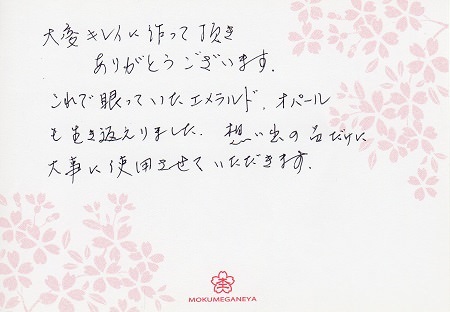 大変キレイに作って頂き
ありがとうございます.
これで眠っていたエメラルド、オパール
も生き返えりました. 想い出の品だけに
大事に使用させていただきます.
MOKUMEGANEYA